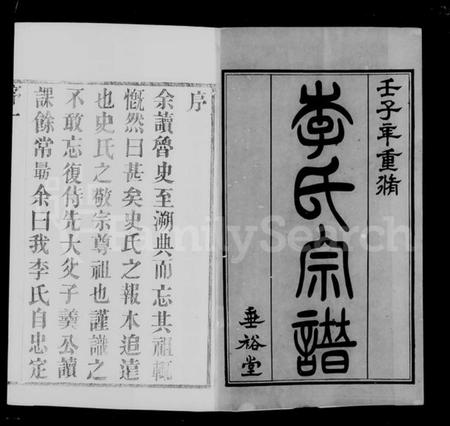 壬子年重脩
李氏宗譜
垂裕堂
序
余讀魯史至溯典而忘其祖輒
慨然曰甚矣史氏之報本追遠
也史氏之敬宗尊祖也謹識之
不敢忘復侍先大父子羹公讀
課餘常最余曰我李氏自忠定
序一
FamilySearch